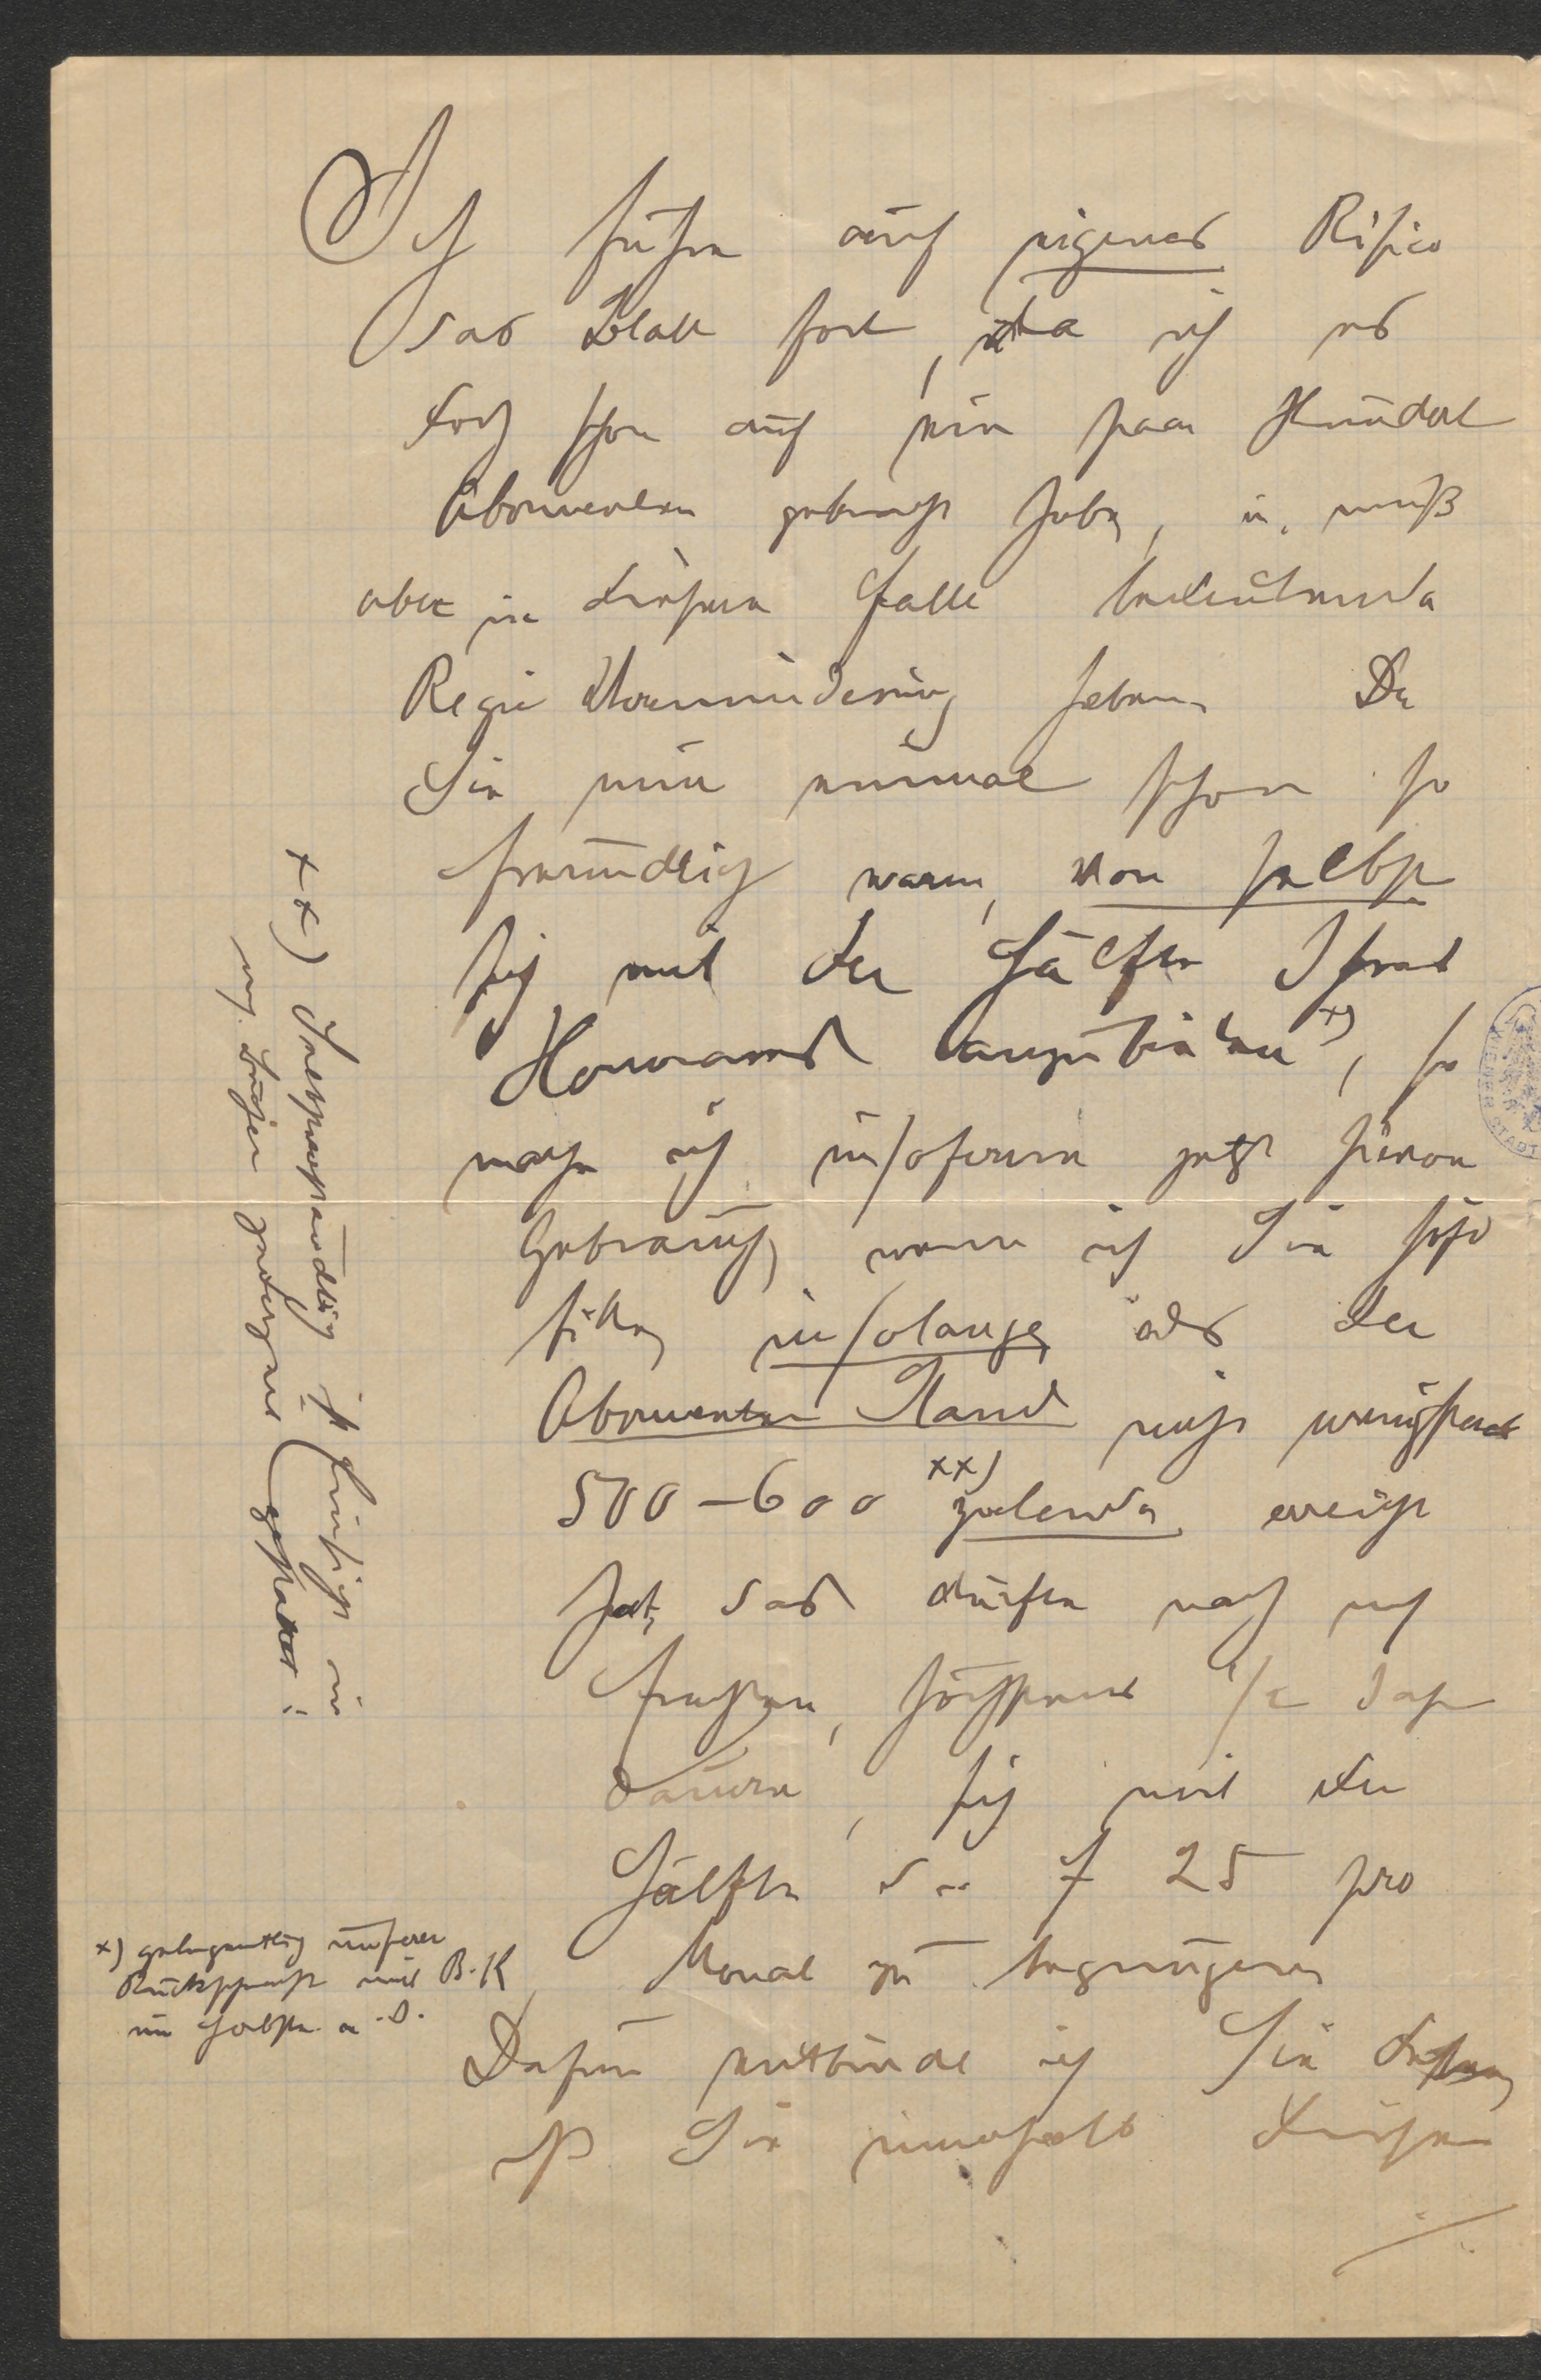 Ich führe auf eigenes Risico
das Blatt fort, da ich es
doch schon auf ein paar Hundert
Abonnenten gebracht habe, u. muß
aber in diesem Falle bedeutende
Regie Verminderung haben. Da
Sie mir einmal schon so
freundlich waren, von selbst
sich mit der Hälfte Ihres
Honorares anzubieten x), so
mache ich insoferne jetzt hievon
Gebrauch, wenn ich Sie
bitte, insolange als der
Abonnenten Stand nicht wenigstens
500–600 xx) zalende erreicht
hat, das dürfte nach
höchstens 1/2 Jahr
dauern, sich mit der
Hälfte d. i. f 25 pro
Monat zu begnügen.
Dafür entbinde ich Sie
Sie innerhalb dieser
x) gelegentlich unserer
Rücksprache mit B. K
im
xx) Selbstverständlich ist Einsicht in